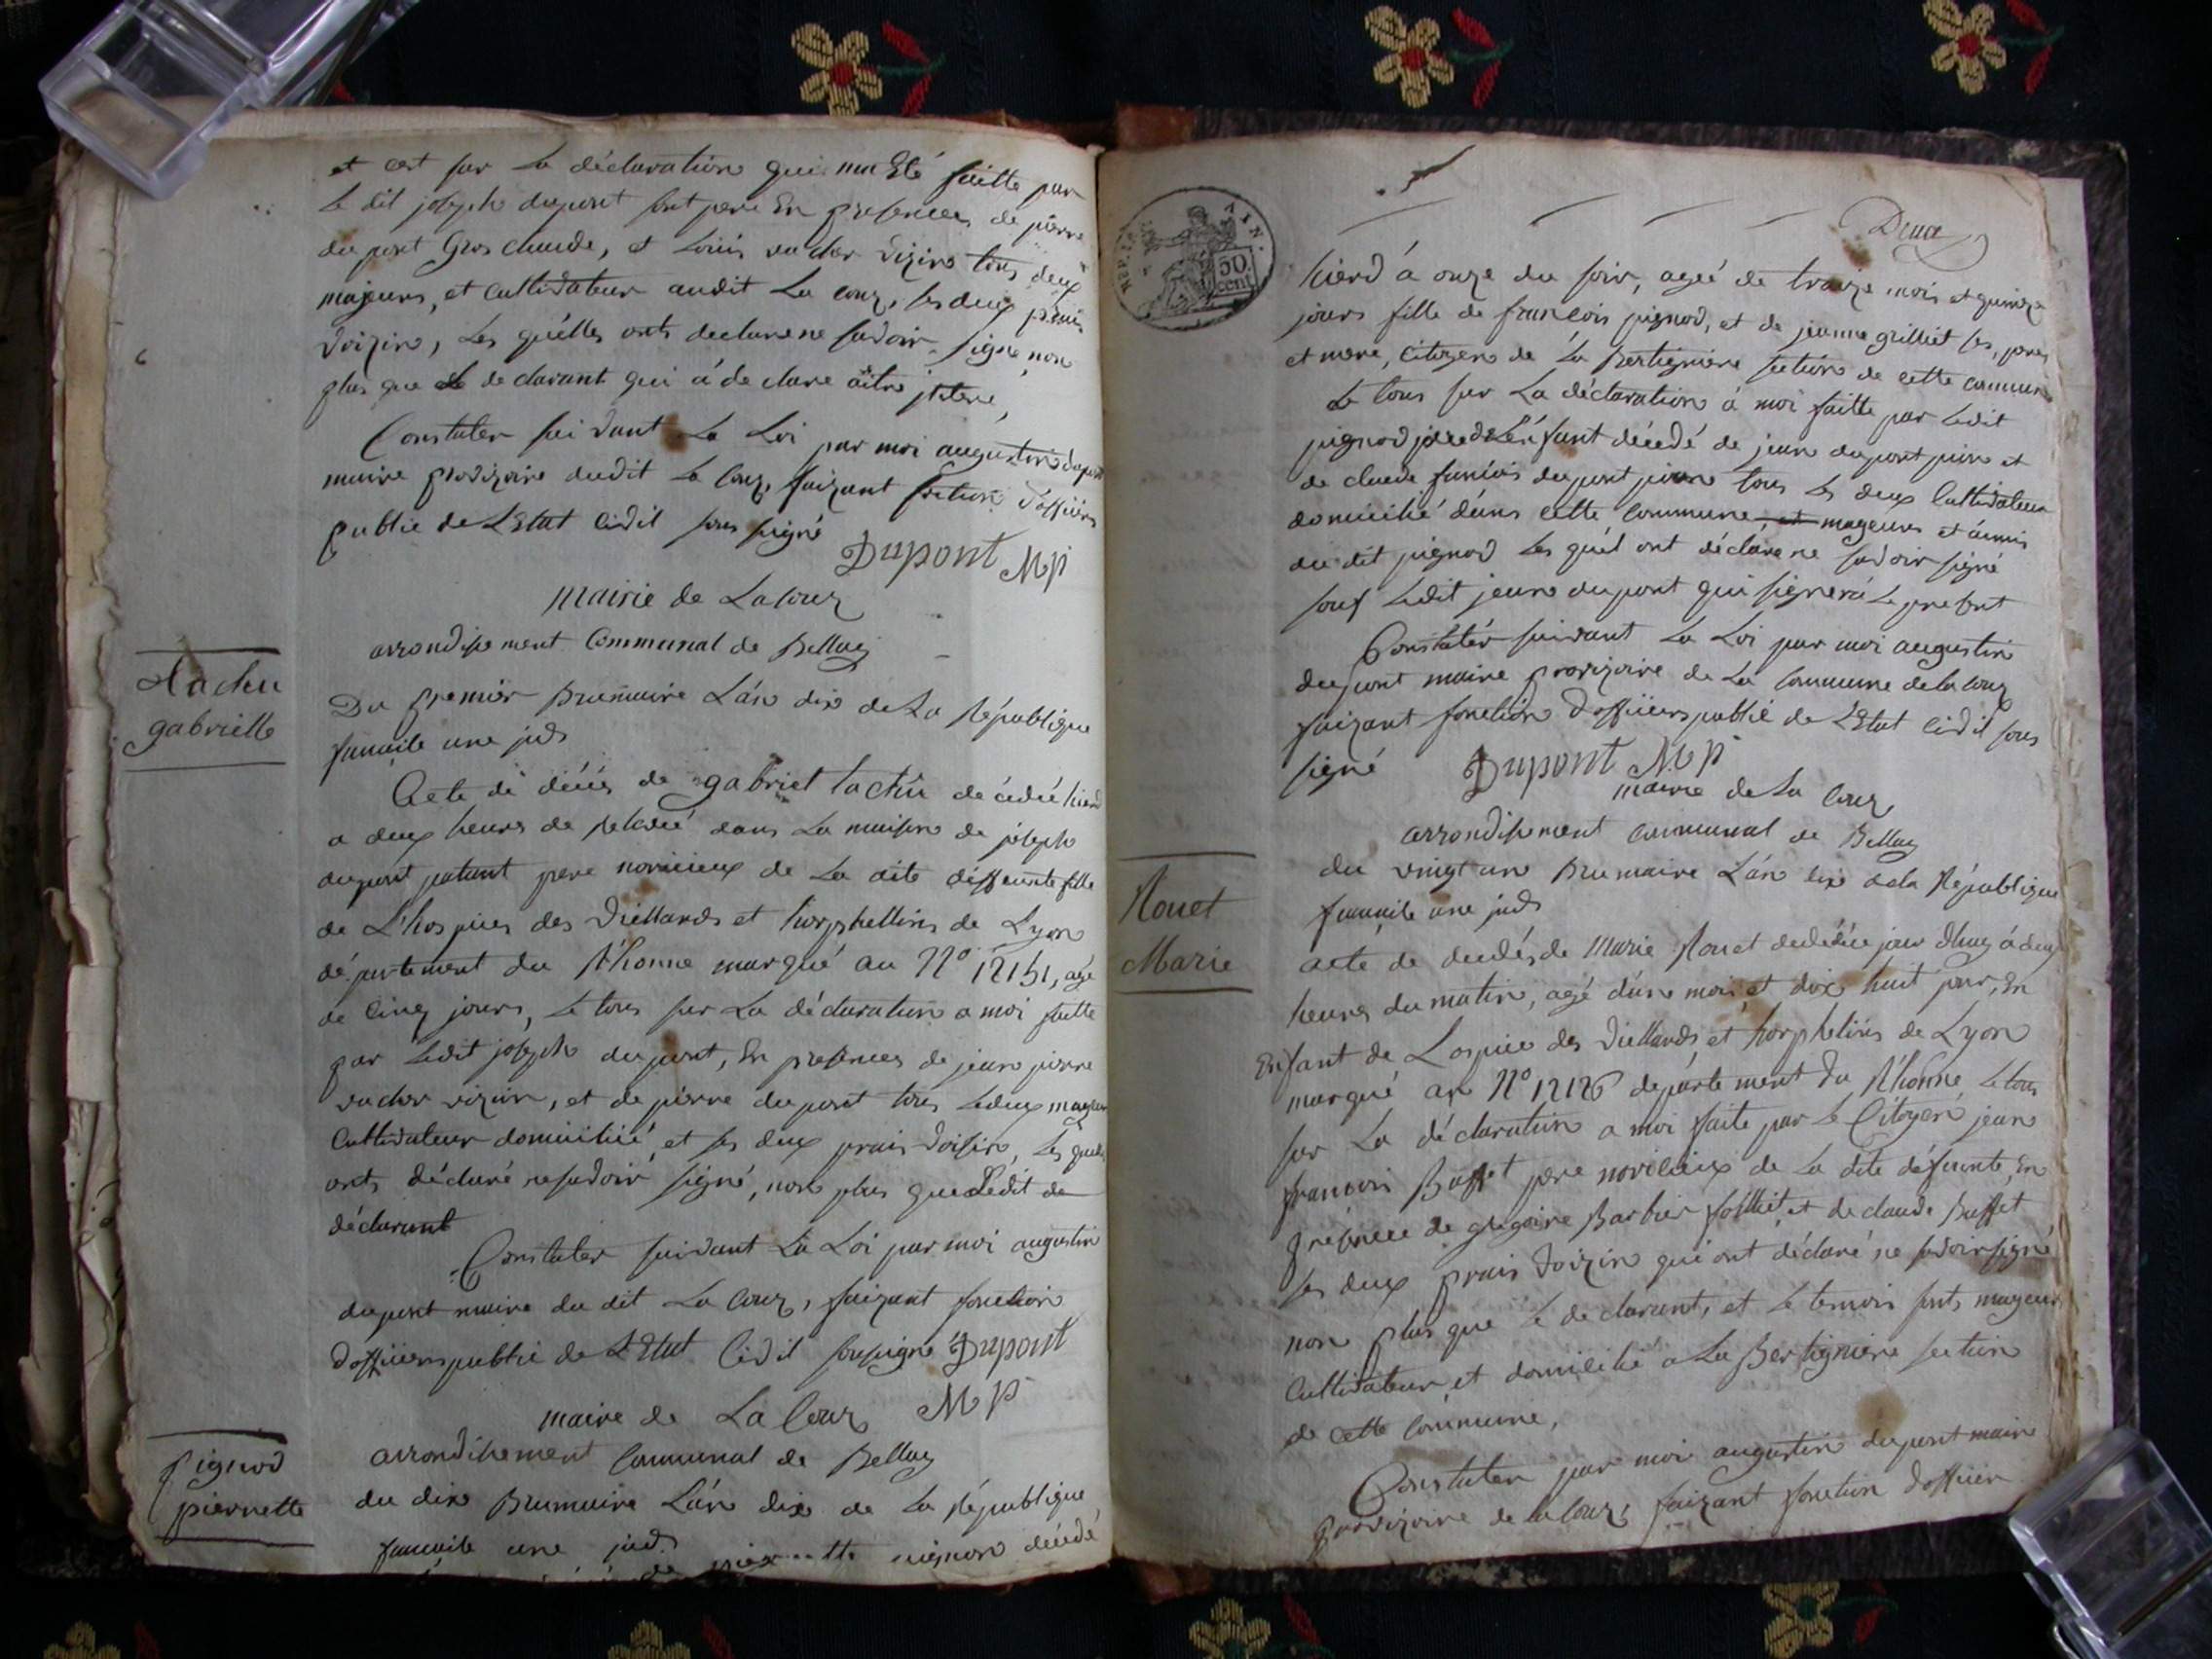 et cest sur La déclaration qui ma Eté faitte par
Le dit joseph dupont sont pere En presences de pierre
du pont Gros claude, et Louis vucher vizins tous deux
majeurs, et Cultivateur audit La Coux, ses deux prais
Voizin, Les quélles onts declare ne savoir signe non
plus que Le declarant qui á declare aitre jletere,
Constater suivant La Loi par moi augustin dupont
maire provizoire dudit La Coux, faizant fontion d'offiiers
public de LEtat Civil sous signé
Dupont MP
Mairie de La Coux
arrondissement Communal de Bellay
Lachu
gabrielle
Du premier Brumaire L'án dix de La République
francaise une jndv
Acte de décés de gabriel lachu decédée hierd
a deux heures de relevée dans La maison de joseph
dupont patant pere novricieux de La dite deffeunte fille
de L'hospices des Viellards et horphellins de Lyon
département du Rhonne marqué au N° 12151, agé
de Cinq jours, Le tous sur La déclaration a moi faitte
par Ledit joseph dupont, En presences de jean pierre
vucher vizin, et de pierre dupont tous Ledeux mageur
Cultivateur domicilié, et ses deux prais voisin, Les quels
onts déclaré ne savoir signé, non plus que Ledit de
déclarant
Constater suivant La Loi par moi augustin
dupont maire du dit La Coux, faizant fonction
doffiiers public de LEtat Civil sousigné Dupont
MP
maire de La Coux
arrondissement Communal de Bellay
Pignod
pierrette
du dix Brumaire L'án dix de La République
francaise une jndv
de tte pignon décédé
Deux
REP. FRA. AIN.
50 cent.
hierd á onze du soir, ageé de traize mois et quinze
jours fille de francois pignod, et de jeanne grilliet ses, peres
et mere, Citoyen de La Bertignière section de cette commune
Le tous sur La déclaration á moi faitte par Ledit
pignod pere de L'énfant décédé de jean dupont juin et
de claude francois dupont tous Les deux Cultivateur
domicilié dans cette Commune, et mageurs et ámis
du dit pignod Les quél ont déclare ne savoir signé
souf Ledit jean dupont qui signera Le present
Constatér suivant La Loi par moi augustin
dupont maire provizoire de La Commune de la Coux
faizant fonction d'offiiers public de LEtat Civil sous
signé Dupont MP
maire de La Coux
arrondissement Communal de Bellay
Rouet
Marie
du vingt un Brumaire L'án dix de la République
francaise une jndv
acte de decés de Marie Rouet decedée jour dhuy á deux
heures du matin, agé dún mois et dix huit jour, En
Enfant de Lospice des Viellards et horphelins de Lyon
marqué au N° 12126 departement du Rhonne, Le tous
sur La déclaration a moi faite par Le Citoyen jean
francois Buffet pere novricieux de La dite défunte, En
présence de gregoire Barbier follliet, et de claude Buffet
ses deux prais Voizin qui ont déclaré ne savoir signé
non plus que Le declarant, et Le temoin sonts mageurs
Cultivateur et domicilié a La Bertigniere section
de cette Commune,
Constater par moi augustin dupont maire
provizoire de la Coux, faizant fonction doffiier